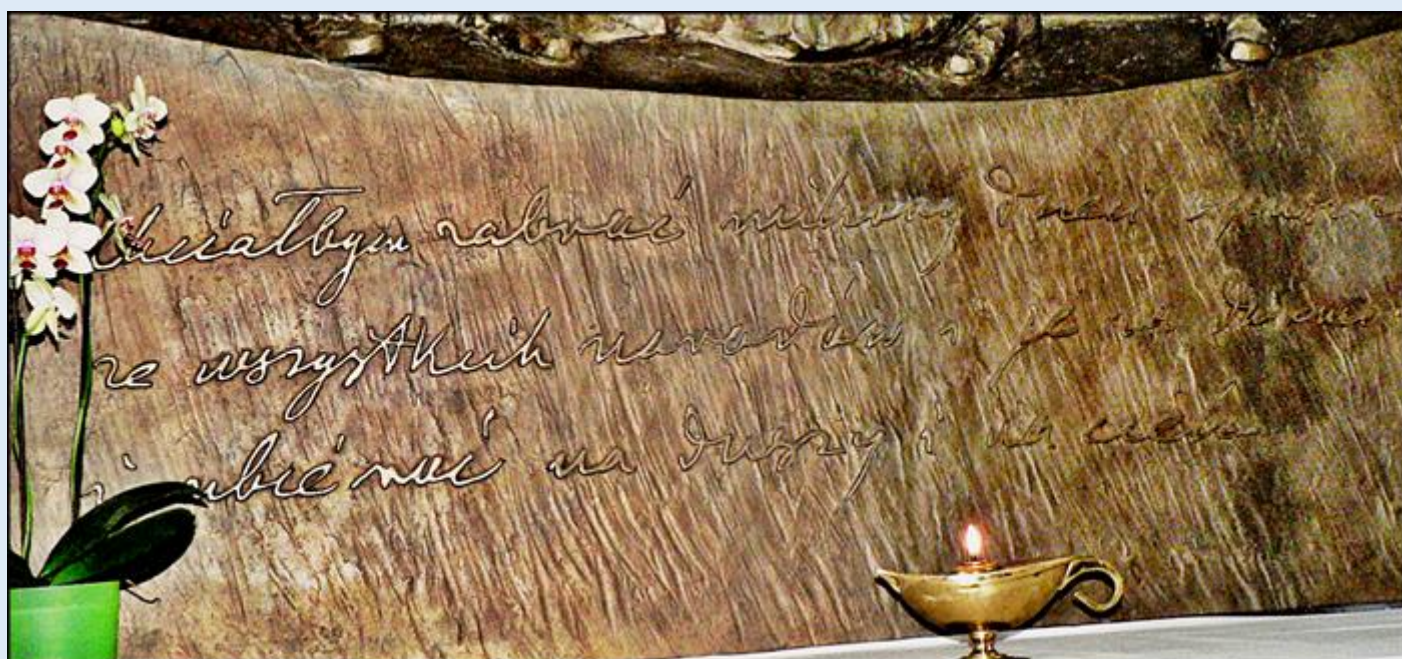 Chciałbym zabrać miliony dzieci
ze wszystkich narodów i je
i ubierać na duszy i na ciele